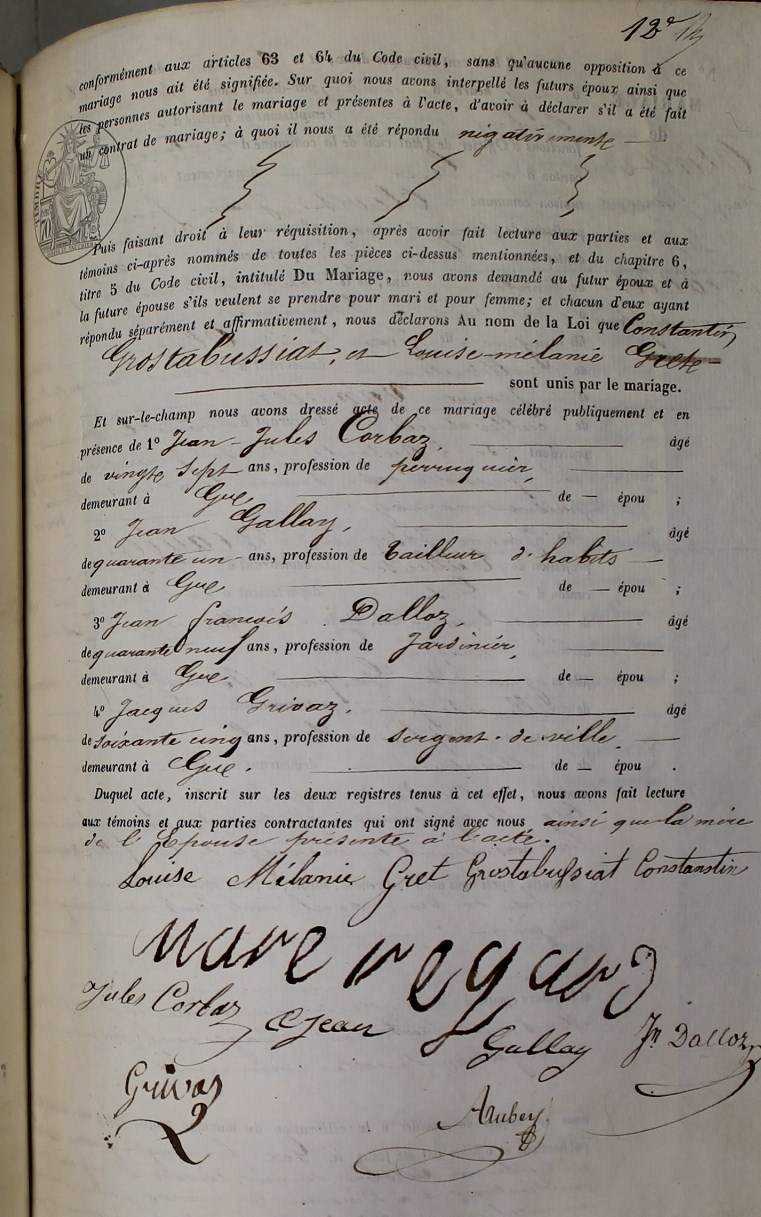 12e
conformément aux articles 63 et 64 du Code civil, sans qu'aucune opposition à ce
mariage nous ait été signifiée. Sur quoi nous avons interpellé les futurs époux ainsi que
les personnes autorisant le mariage et présentes à l'acte, d'avoir à déclarer s'il a été fait
un contrat de mariage; à quoi il nous a été répondu négativemente
TIMBRE
Puis faisant droit à leur réquisition, après avoir fait lecture aux parties et aux
témoins ci-après nommés de toutes les pièces ci-dessus mentionnées, et du chapitre 6,
titre 5 du Code civil, intitulé Du Mariage, nous avons demandé au futur époux et à
la future épouse s'ils veulent se prendre pour mari et pour femme; et chacun d'eux ayant
répondu séparément et affirmativement, nous déclarons Au nom de la Loi que Constantin
Grostabussiat, et Louise-mélanie Grete
sont unis par le mariage.
Et sur-le-champ nous avons dressé acte de ce mariage célébré publiquement et en
présence de 1º Jean-Jules Corbaz, âgé
de vingte sept ans, profession de perruquier,
demeurant à Gex de — épou ;
2º Jean Gallay, âgé
de quarante un ans, profession de tailleur d'habits
demeurant à Gex de — épou ;
3º Jean françois Dalloz, âgé
de quarante neuf ans, profession de Jardinier,
demeurant à Gex de — épou ;
4º Jacques Grivaz, âgé
de soixante cinq ans, profession de sergent de ville
demeurant à Gex. de — épou .
Duquel acte, inscrit sur les deux registres tenus à cet effet, nous avons fait lecture
aux témoins et aux parties contractantes qui ont signé avec nous ainsi que la mère
de l'Epouse présente à l'acte.
Louise Mélanie Gret Grostabussiat Constanstin
Jules Corbaz Jean Gallay Jn Dalloz
Grivaz